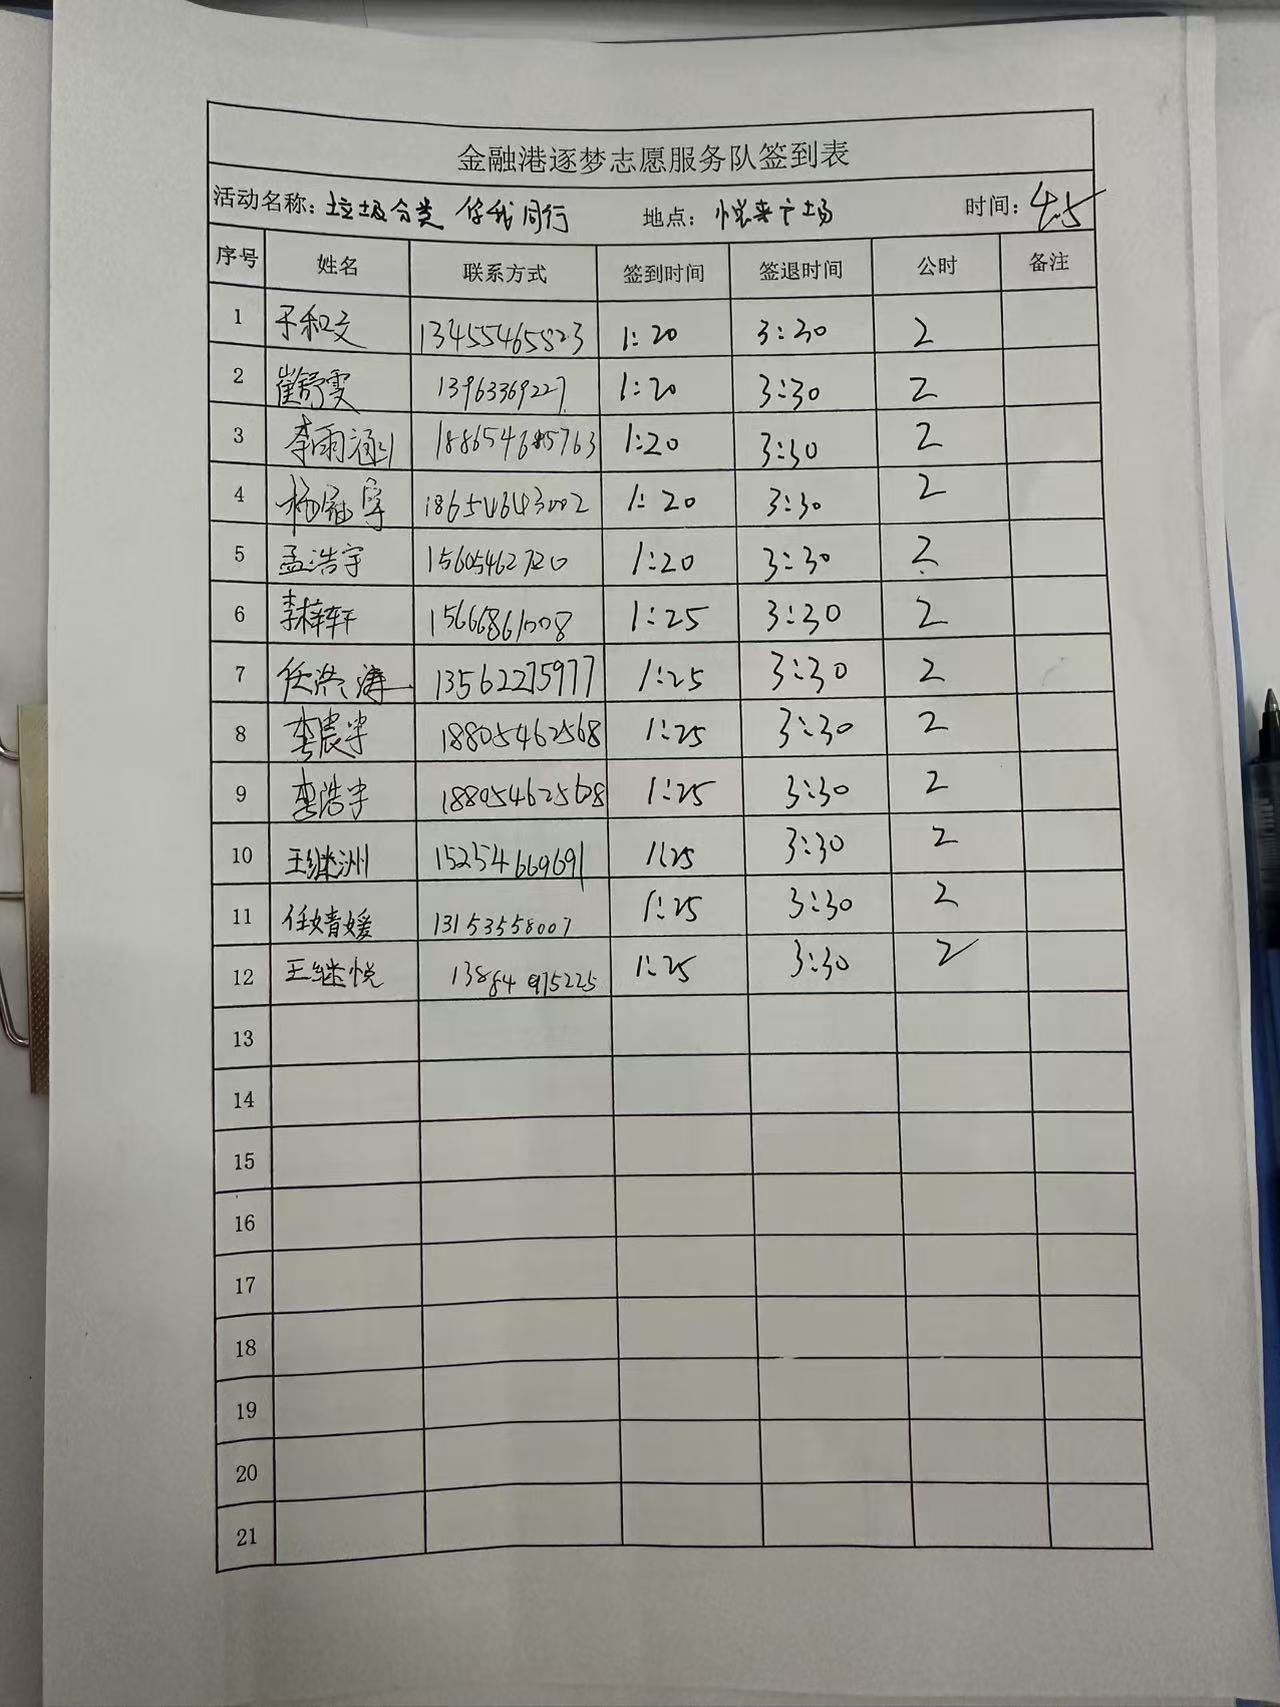 金融港逐梦志愿服务队签到表
活动名称: 垃圾分类 你我同行 地点: 悦来广场 时间: 4.5
序号 姓名 联系方式 签到时间 签退时间 公时 备注
1 于和文 13455465823 1:20 3:30 2
2 崔舒雯 13963369227 1:20 3:30 2
3 李雨涵 1:20 3:30 2
4 18654643002 1:20 3:30 2
5 孟浩宇 1:20 3:30 2
6 李梓轩 15666861008 1:25 3:30 2
7 13562275977 1:25 3:30 2
8 18805462568 1:25 3:30 2
9 18805462568 1:25 3:30 2
10 王继洲 15254669691 1:25 3:30 2
11 任婧媛 13153558007 1:25 3:30 2
12 王继悦 13884975225 1:25 3:30 2
13
14
15
16
17
18
19
20
21